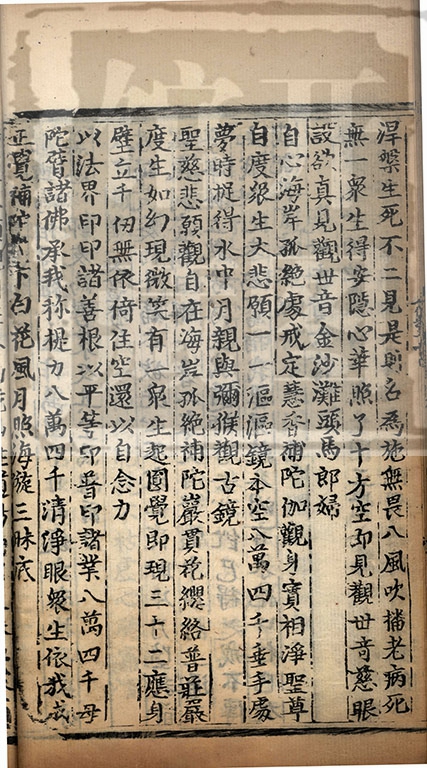 涅槃生死不二見是則名為施無畏八風吹播老病死
無一衆生得安隱心華照了十方空即見觀世音慈眼
設欲真見觀世音金沙灘頭馬郎婦
自心海岸孤絕處戒定慧香補陀伽觀身實相淨聖尊
自度衆生大悲願一一漚漚鏡本空八萬四千垂手處
夢時捉得水中月親與獼猴觀古鏡
聖慈悲願觀自在海岸孤絕補陀巖貫花纓絡普莊嚴
度生如幻現微笑有一衆生起圓覺即現三十二應身
壁立千仞無依倚住空還以自念力
以法界印印諸善根以平等印普印諸業八萬四千母
陀臂諸佛承我稱提力八萬四千清淨眼衆生依我成
正覺補陀
白花風月照海漩三昧底